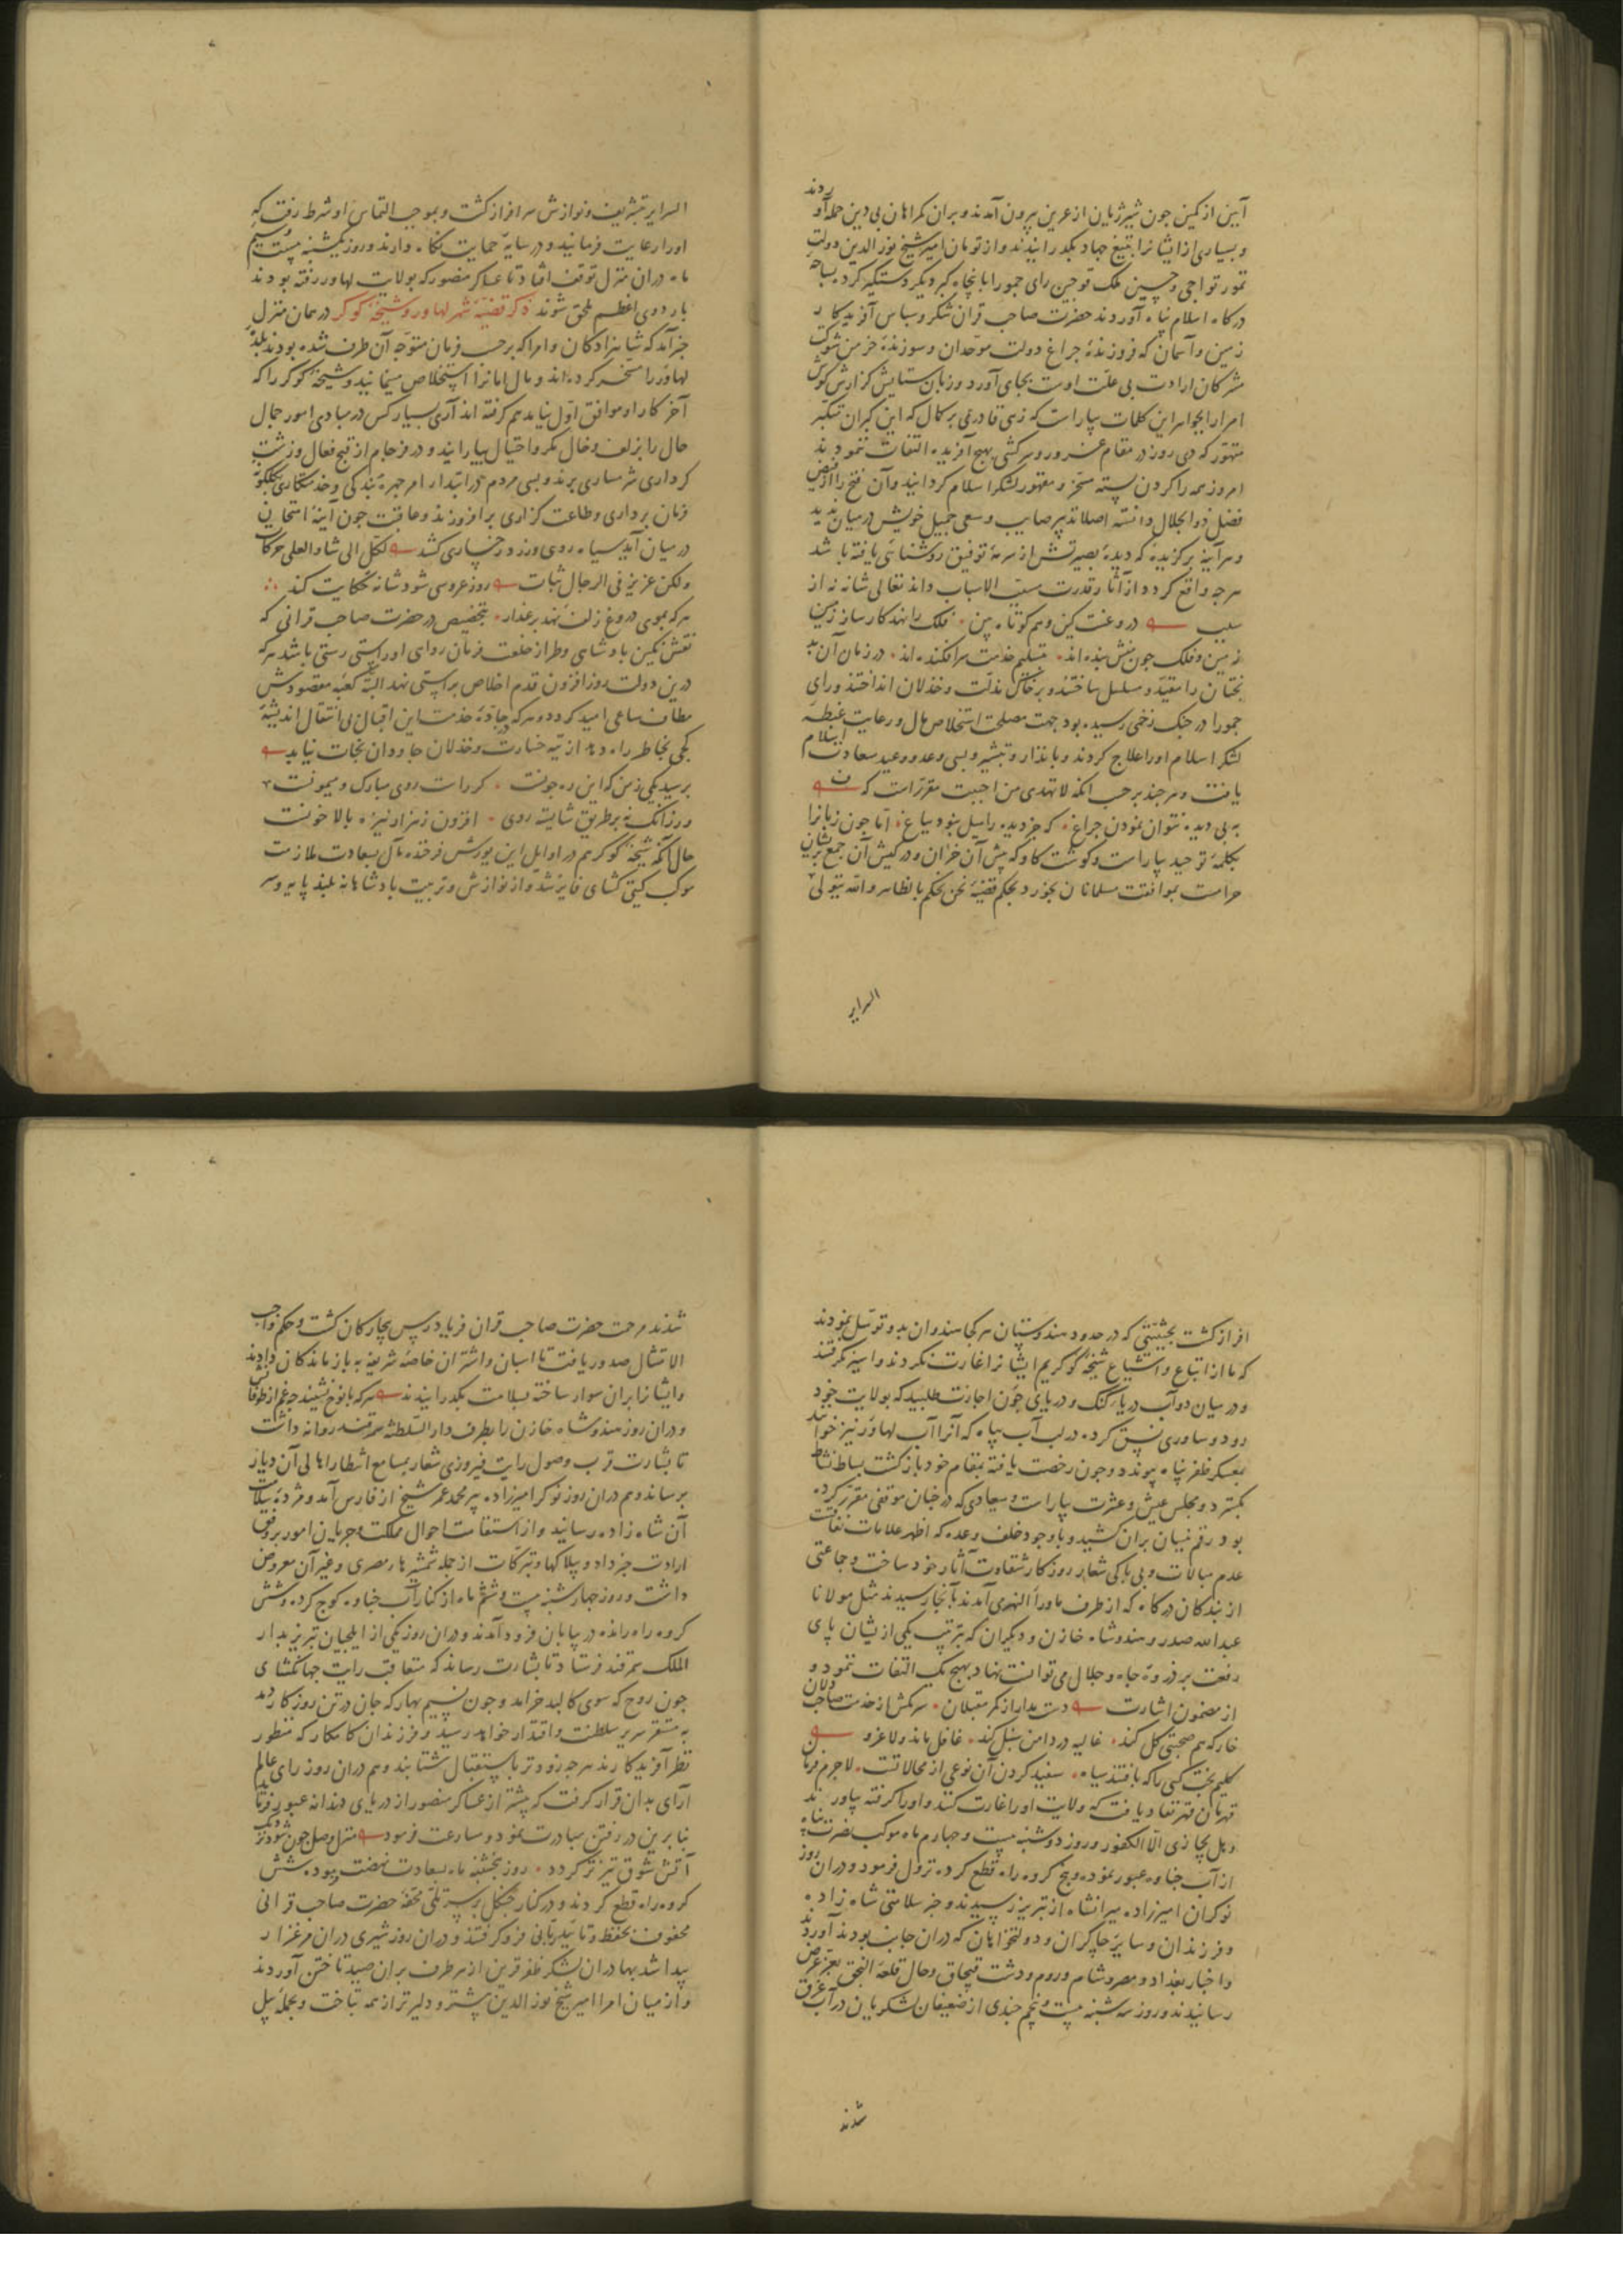 آیین از کمین جون شیر ژیان از عرین بیرون آمدند و بران کمراهان بی دین حمله آوردند
و بسیاری از ایشانرا بتیغ جهاد بکدرانیدند و از تومان امیر شیخ نور الدین دولت
تمور تواجی و حسین ملک قوجین رای جمو را با پنجاه کبر دیکر دستکیر کرده بساحه
درکاه اسلام پناه آوردند حضرت صاحب قران شکر و سپاس آفریدکار
زمین و آسمان که فروزندهٔ جراغ دولت موحدان و سوزندهٔ خرمن شوکت
مشرکان ارادت بی علت اوست بجای آورد و زبان ستایش کزارش کوش
امرا را بجواهر این کلمات بیاراست که زهی قادری بر کمال که این کبران متکبر
متهور که دی روز در مقام غرور و سرکشی بهیچ آفریده التفات ننمودند
امروز همه را کردن بسته مسخر و مقهور لشکر اسلام کردانید و آن فتح را از فیض
فضل ذو الجلال دانسته اصلا تدبیر صایب و سعی جمیل خویش در میان ندید
و هر آینه برکزیدهٔ که دیدهٔ بصیرتش از سرمهٔ توفیق روشنائی یافته باشد
هرجه واقع کردد از آثار قدرت مسبب الاسباب داند تعالی شانه نه از
سبب در وغت کین وهم کوتاه بین فلک را نهد کارساز زمین
زمین و فلک جون منش بنده اند بتسلیم خدمت سرافکنده اند در زمان آن بد
بختان را مقید و مسلسل ساختند و بر خاک مذلت و خذلان انداختند و رای
جمو را در جنک زخمی رسیده بود جهت مصلحت استخلاص مال و رعایت غبطهٔ
لشکر اسلام او را علاج کردند و بانذار و تبشیر و بسی وعد و وعید سعادت اسلام
یافت و هر جند بر حسب انک لا تهدی من احببت مقرر است که
به بی دیده نتوان نمودن جراغ که جز دیده را میل نبود بباغ اما جون زبانرا
بکلمهٔ توحید بیاراست و کوشت کاو که پیش آن خران و در کیش آن جمع پریشان
حرامست بموافقت مسلمانان بخورد بحکم قضیهٔ نحن نحکم بالظاهر والله یتولی
السرایر
السرایر بتشریف و نوازش سرافراز کشت و بموجب التماس او شرط رفت که
او را رعایت فرمایند و در سایهٔ حمایت نکاه دارند و روز یکشنبه بیست و سیم
ماه دران منزل توقف افتاد تا عساکر منصور که بولایت لهاور رفته بودند
باردوی اعظم ملحق شوند ذکر قضیهٔ شهر لهاور و شیخهٔ کوکر در همان منزل
خبر آمد که شاهزادکان و امرا که بر حسب فرمان متوجه آن طرف شده بودند بلدهٔ
لهاور را مسخر کرده اند و مال امانرا استخلاص مینمایند و شیخهٔ کوکر را که
آخر کار او موافق اول نیامد هم کرفته اند آری بسیار کس در مبادی امور جمال
حال را بزلف و خال مکر و احتیال بیارایند و در فرجام از قبح فعال و زشت
کرداری شرمساری برند و بسی مردم در ابتدا از امر جهرهٔ بندکی و خدمتکاری بکلکونهٔ
فرمان برداری و طاعت کزاری برافروزند و عاقبت جون آینهٔ امتحان
در میان آید سیاه روی و زرد رخساری کشد لکل الی شاو العلی حرکات
ولکن عزیز فی الرجال ثبات روز عروسی شود شانه حکایت کند
هرکه بموی دروغ زلف نهد بر عذار بتخصیص در حضرت صاحب قرانی که
نقش نکین بادشاهی و طراز خلعت فرمان روائی او راستی رستی باشد هرکه
درین دولت روز افزون قدم اخلاص براستی نهد البته کعبهٔ مقصودش
مطاف ساعی امید کردد و هرکه جادهٔ خدمت این اقبال بی انتقال اندیشهٔ
کجی بخاطر راه دهد از تیه خسارت و خذلان جاودان نجات نیابد
برسید یکی زمن که این ره جونست کر راست روی مبارک و میمونست
ور زانک نه بر طریق شایسته روی افزون ز هزار نیزه بالا خونست
حال آنکه شیخهٔ کوکر هم در اوایل این یورش فرخنده مآل بسعادت ملازمت
موکب کیتی کشای فایز شد و از نوازش و تربیت بادشاهانه بلند پایه و سر
افراز کشت بحیثیتی که در حدود هندوستان هر کجا هندوان بدو توسل نمودند
که ما از اتباع و اشیاع شیخهٔ کوکریم ایشانرا غارت نکردند و اسیر نکرفتند
و در میان دو آب دریا کنک و دریای جون اجازت طلبید که بولایت خود
رود و ساوری نسق کرده در لب آب بیاه که آنرا آب لهاور نیز خوانند
بمعسکر ظفر پناه پیوندد و جون رخصت یافته بمقام خود بازکشت بساط نشاط
بکسترد و مجلس عیش و عشرت بیاراست و میعادی که در خبان موقفی مقرر کرده
بود رقم نسیان بران کشید و با وجود خلف وعده که اظهر علامات نفاقست
عدم مبالات و بی باکی شعار روزکار شقاوت آثار خود ساخت و جماعتی
از بندکان درکاه که از طرف ماوراء النهری آمدند بآنجا رسیدند مثل مولانا
عبد الله صدر و هندوشاه خازن و دیکران که بترتیب یکی از ایشان پای
رفعت بر ذروهٔ جاه و جلال می توانست نهاد بهیچ یک التفات ننمود و
از مضمون اشارت دست مدار از کمر مقبلان سر مکش از خدمت صاحب دلان
خار که هم صحبتی کل کند غالیه در دامن سنبل کند غافل ماند و لا غرو
کلیم بخت کسی را که بافتند سیاه سفید کردن آن نوعی از محالاتست لا جرم فرمان
قهرمان قهر نفاذ یافت که ولایت او را غارت کنند و او را کرفته بیاورند
و هل یجازی الا الکفور و روز دوشنبه بیست و جهارم ماه موکب نصرت پناه
از آب جناوه عبور نموده و پنج کروه راه قطع کرده نزول فرمود و دران روز
نوکران امیرزاده میرانشاه از تبریز رسیدند و خبر سلامتی شاه زاده
و فرزندان و سایر چاکران و دولتخواهان که دران جانب بودند آوردند
و اخبار بغداد و مصر و شام و روم و دشت قبچاق و حال قلعهٔ النجق بعز عرض
رسانیدند و روز سه شنبه بیست و پنجم جندی از ضعیفان لشکریان در آب غرق
شدند
شدند مرحمت حضرت صاحب قران فریادرس بیچارکان کشت و حکم واجب
الامتثال صدور یافت تا اسبان و اشتران خاصهٔ شریفه به بازماندکان دادند
و ایشانرا بران سوار ساخته بسلامت بکدرانیدند هرکه با نوح نشیند چه غم از طوفانش
و دران روز هندوشاه خازن را بطرف دار السلطنهٔ سمرقند روانه داشت
تا بشارت قرب وصول رایت فیروزی شعار بمسامع انتظار اهالی آن دیار
برساند و هم دران روز نوکر امیرزاده پیر محمد عمر شیخ از فارس آمد و مژدهٔ سلامت
آن شاه زاده رسانید و از استقامت احوال مملکت و جریان امور بر وفق
ارادت خبر داد و بیلاکها و تبرکات از جمله شمشیرهای مصری و غیر آن معروض
داشت و روز جهارشنبه بیست و ششم ماه از کنار آب جناوه کوج کرده و شش
کروه راه رانده در بیابان فرود آمدند و دران روز یکی از ایلچیان تبریز بدار
الملک سمرقند فرستاد تا بشارت رساند که متعاقب رایت جهانکشای
جون روح که سوی کالبد خرامد و جون نسیم بهار که جان در تن روزکار دمد
به مستقر سریر سلطنت و اقتدار خواهد رسید و فرزندان کامکار که منظور
نظر آفریدکارند هر جه زودتر باستقبال شتابند و هم دران روز رای عالم
آرای بدان قرار کرفت که پیشتر از عساکر منصور از دریای دندانه عبور فرماید
بنابرین در رفتن مبادرت نمود و مسارعت فرمود منزل وصل جون شود نزدیک
آتش شوق تیزتر کردد روز پنجشنبه ماه بسعادت نهضت نموده شش
کروه راه قطع کردند و در کنار جنکل بر سر پلی محفهٔ حضرت صاحب قرانی
محفوف بحفظ و تأیید ربانی فرو کرفتند و دران روز شیری دران مرغزار
پیدا شد بهادران لشکر ظفر قرین از هر طرف بران صید تاختن آوردند
و از میان امرا امیر شیخ نور الدین پیشتر و دلیرتر از همه بتاخت و بحملهٔ پیل